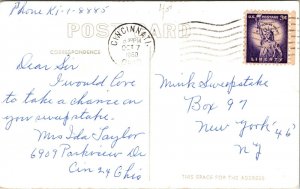 Phone Ki-1-8885
POSTCARD
CINCINNATI
OCT 7
1960
U.S. POSTAGE 3¢
LIBERTY
CORRESPONDENCE
Dear Sir
I would Love
to take a chance on
your swepstake.
Mrs Ida Taylor
6909 Parkview Dr
Cin 24 Ohio
Mink Sweepstake
Box 97
New York "46"
NY
THIS SPACE FOR ADDRESS